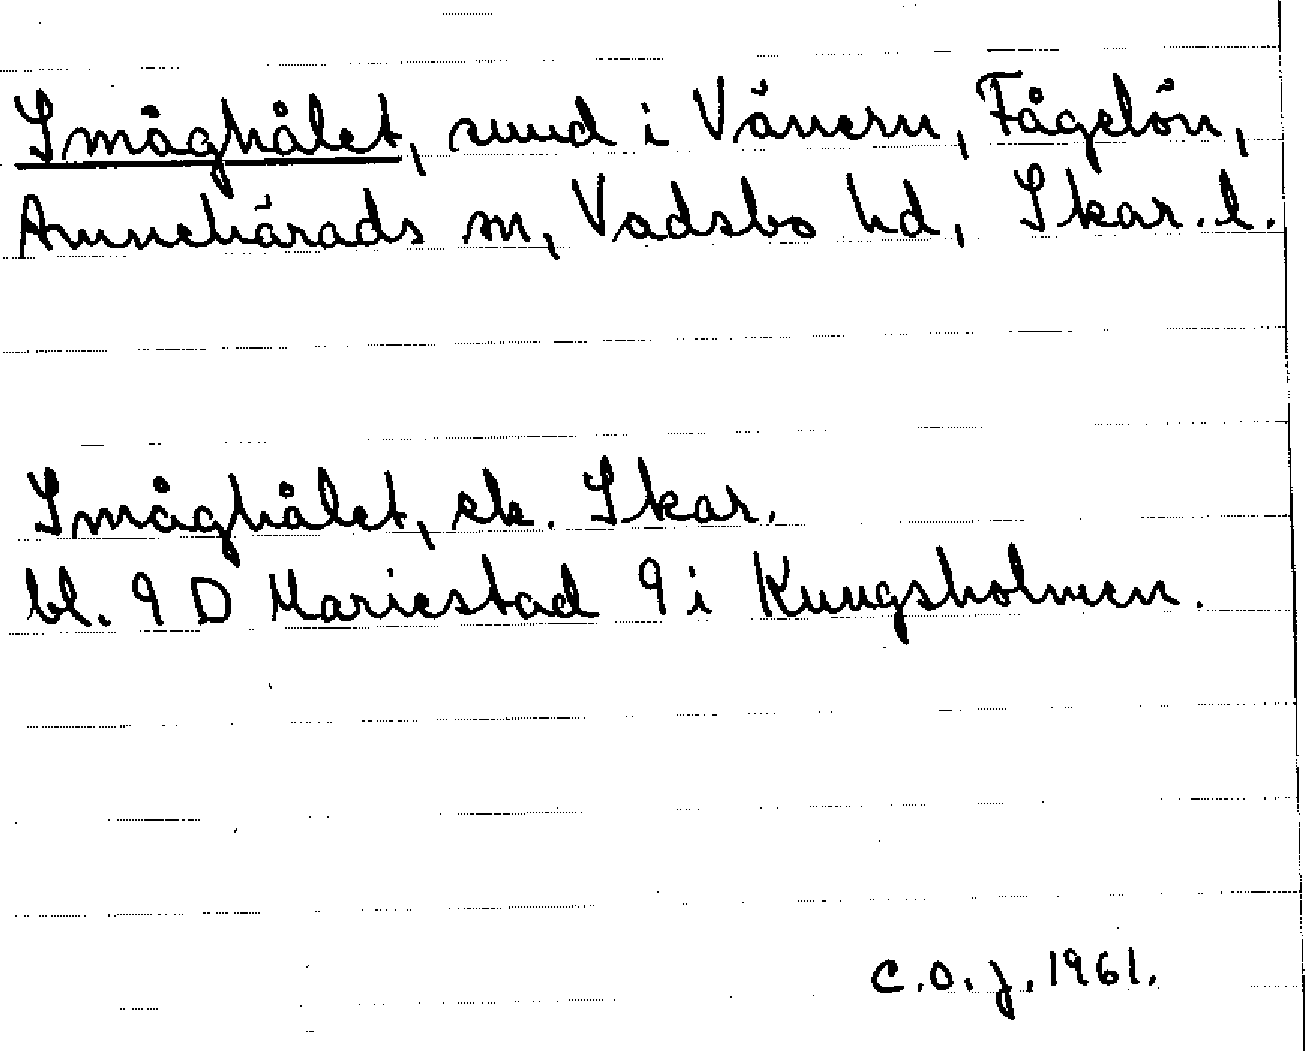 Småghålet, sund i Vänern, Fågelön,
Amnehärads sn, Vadsbo hd, Skar. l.
Småghålet, ek. Skar.
bl. 9 D Mariestad 9 i Kungsholmen.
C.O.J. 1961.